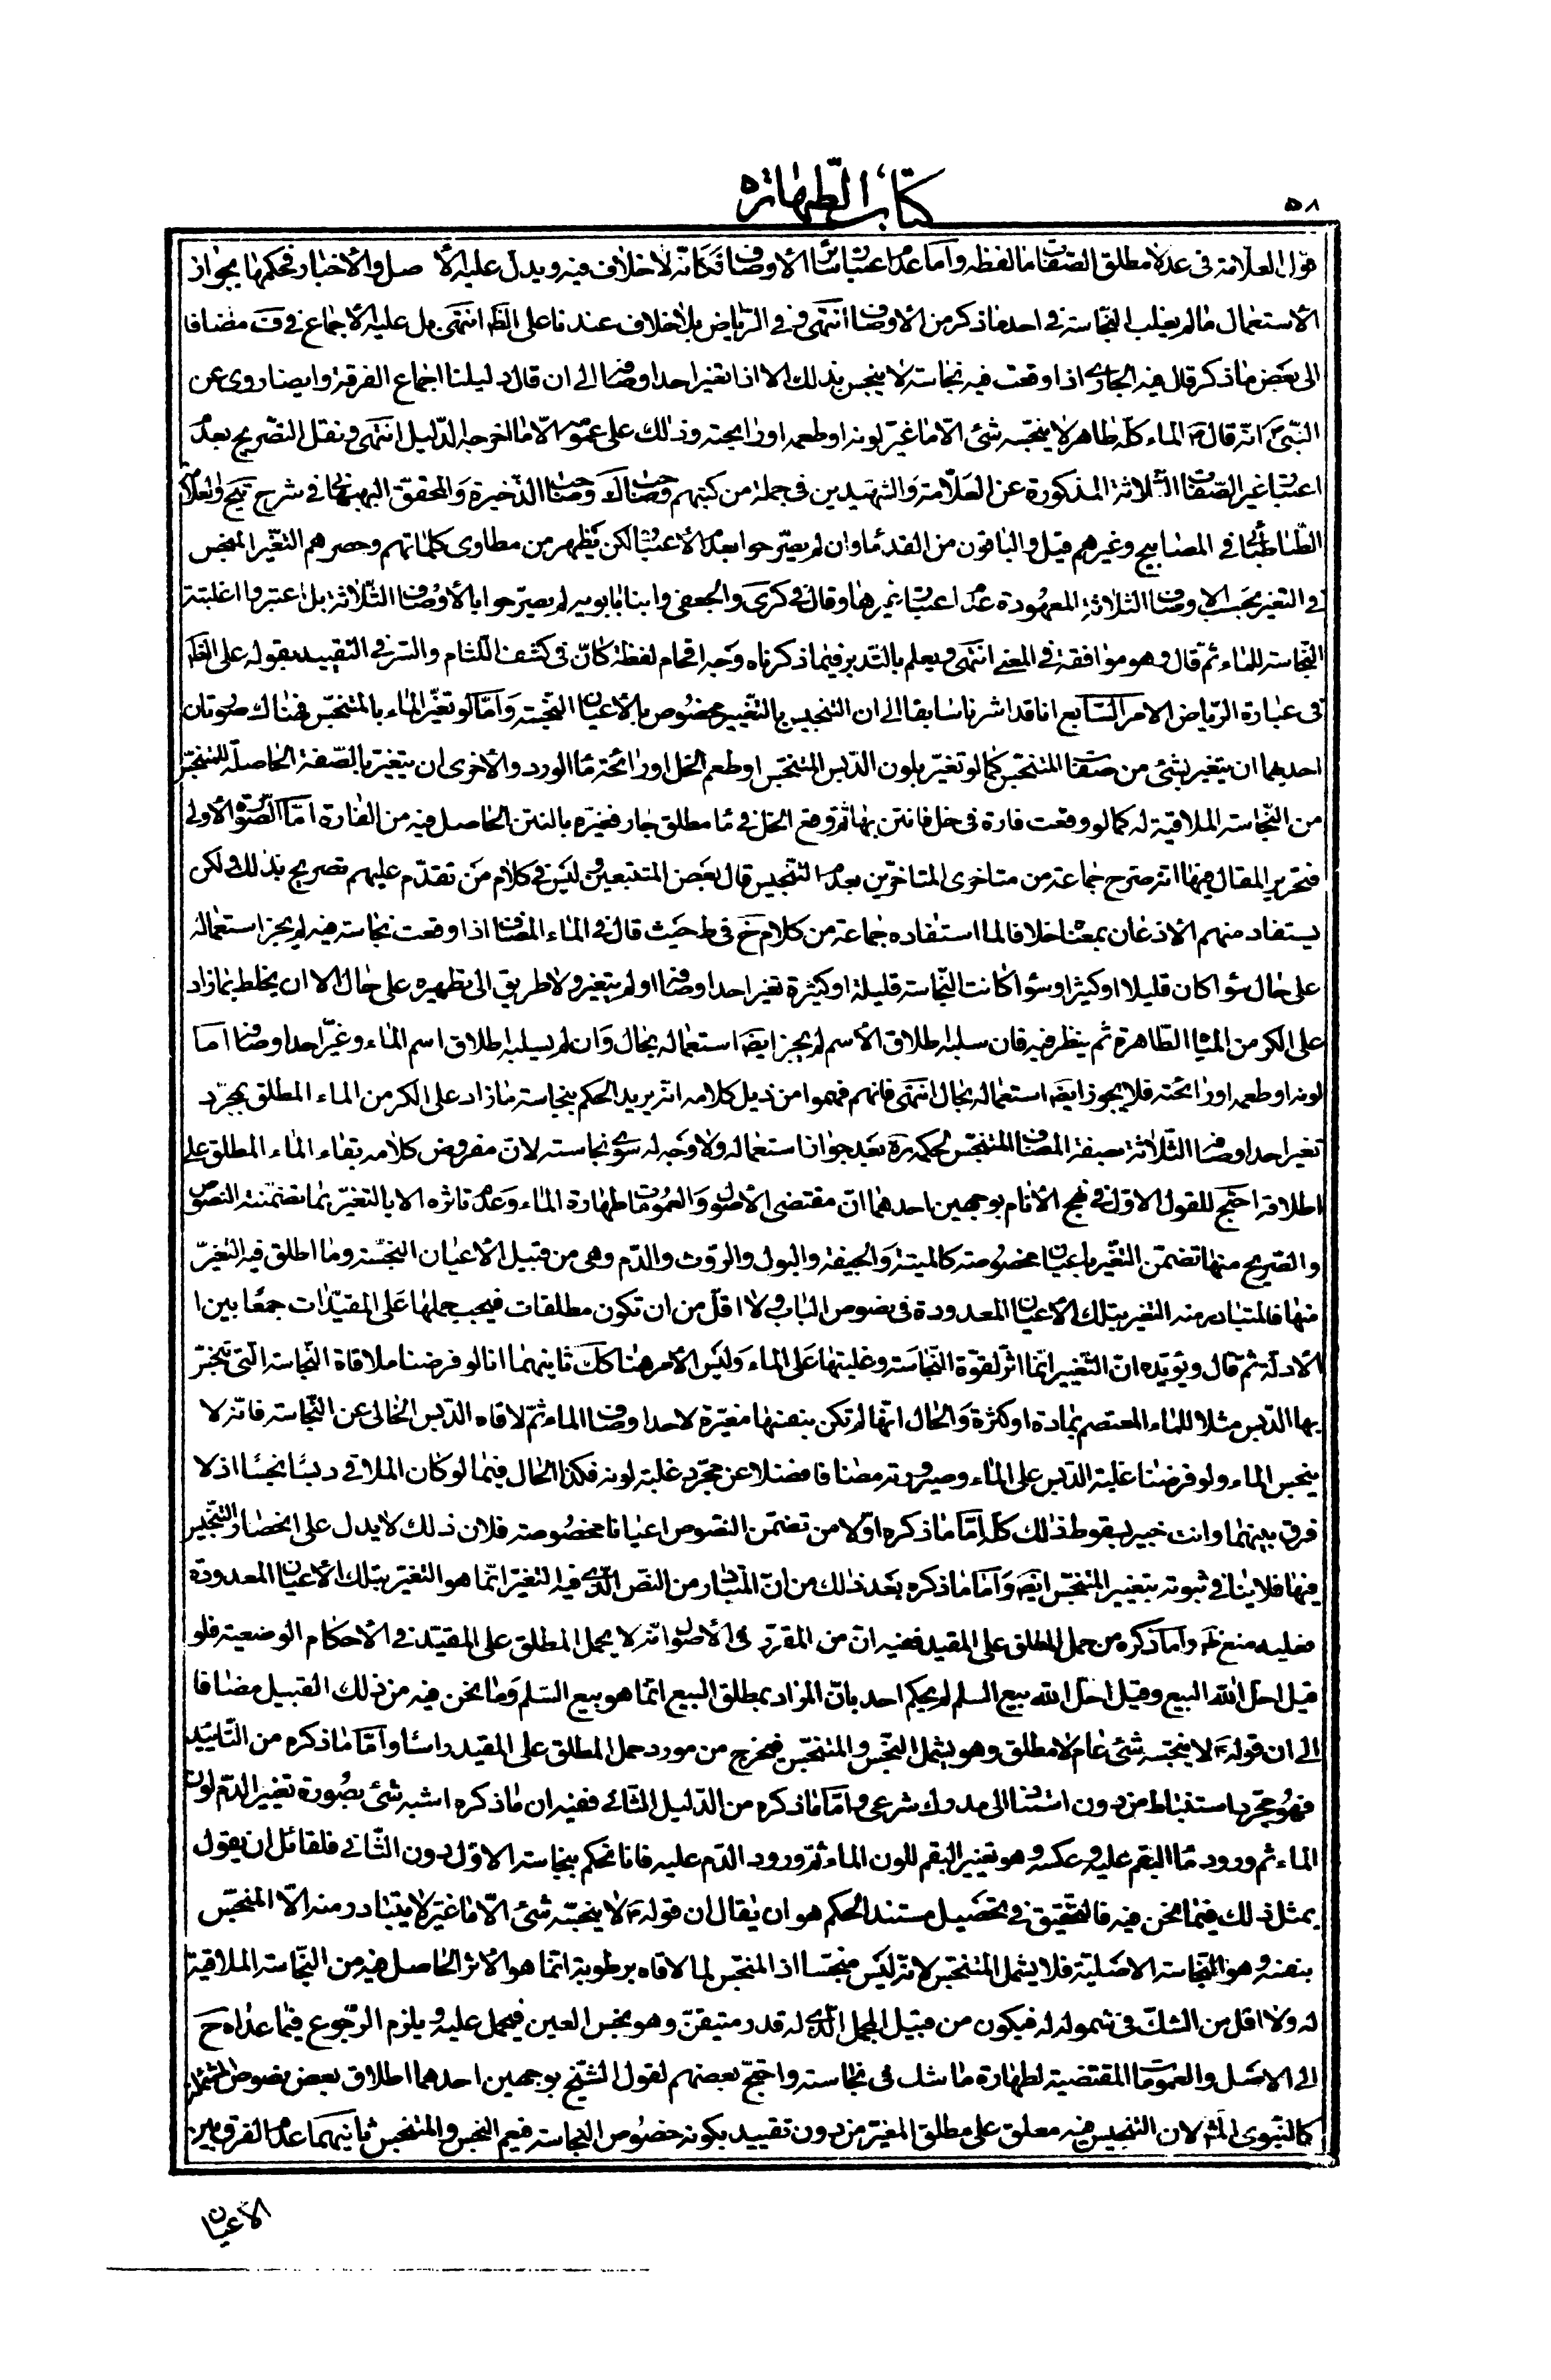 ٥٨
كتاب الطهارة
قول العلامة في عدة مطلق الصفات ما لفظه واما عدم اعتبار سائر الأوصاف فكانّه لا خلاف فيه ويدل عليه الأصل والأخبار فحكمها بجواز
الأستعمال ما لم يغلب النجاسة في احد ما ذكر من الأوصاف انتهى وفي الرّياض بلا خلاف عندنا على الظّ انتهى بل عليه الأجماع في ف مضافا
الى بعض ما ذكر قال فيه الجاري اذا وقعت فيه نجاسة لا ينجس بذلك الا اذا تغير احد اوصافه الى ان قال دليلنا اجماع الفرقة وايضا روى عن
النّبي ص انّه قال ص الماء كلّه طاهر لا ينجّسه شئ الّا ما غيّر لونه او طعمه او رايحته وذلك على عمومه الّا ما اخرجه الدّليل انتهى ونقل التصريح بعدم
اعتبار غير الصّفات الثلاثة المذكورة عن العلّامة والشهيدين في جملة من كتبهم وصاحب لك وصاحب الذّخيرة والمحقق البهبهاني في شرح تيح والعلامة
الطّباطبائي في المصابيح وغيرهم قيل والباقون من القدماء وان لم يصرّحوا بعدم الأعتبار لكن يظهر من مطاوى كلماتهم وحصرهم التغيّر المنجس
في التغير بحسب الاوصاف الثلاثة المعهودة عدم اعتبار غيرها وقال في كرى والجعفي وابنا بابويه لم يصرّحوا بالأوصاف الثّلاثة بل اعتبروا اغلبيّة
النّجاسة للماء ثم قال وهو موافقة في المعنى انتهى ويعلم بالتدبر فيما ذكرناه وجه اقحام لفظة كانّ في كشف اللثام والسّر في التقييد بقوله على الظّ
في عبارة الرّياض الامر السّابع انا قد اشرنا سابقا الى ان التنجيس بالتغيير مخصوص بالأعيان النّجسة وامّا لو تغيّر الماء بالمتنجّس فهناك صورتان
احديهما ان يتغير بشئ من صفات المتنجّس كما لو تغيّر بلون الدّبس المتنجّس او طعم الخل او رائحة ماء الورد والأخرى ان يتغيّر بالصّفة الحاصلة للمتنجّس
من النّجاسة الملاقية له كما لو وقعت فارة في خل فانتن بها ثم وقع الخل في ماء مطلق جار فغيّره بالنتن الحاصل فيه من الفارة امّا الصّورة الأولى
فتحرير المقال فيها انّه صرّح جماعة من متاخرى المتاخّرين بعدم التنجيس قال بعض المتتبعين وليس في كلام من تقدّم عليهم تصريح بذلك ولكن
يستفاد منهم الأذعان بمعناه خلافا لما استفاده جماعة من كلام خ في ط حيث قال في الماء المضاف اذا وقعت نجاسة فيه لم يجز استعماله
على حال سواء كان قليلا او كثيرا وسواء كانت النّجاسة قليلة او كثيرة تغير احد اوصافه او لم يتغير ولا طريق الى تطهيره على حال الا ان يخلط بما زاد
على الكر من المياه الطّاهرة ثم ينظر فيه فان سلبه اطلاق الأسم لم يجز ايضا استعماله بحال وان لم يسلبه اطلاق اسم الماء وغيّر احد اوصافه اما
لونه او طعمه او رائحته فلا يجوز ايضا استعماله بحال انتهى فانهم فهموا من ذيل كلامه انّه يريد الحكم بنجاسة ما زاد على الكر من الماء المطلق بمجرّد
تغير احد اوصافه الثّلاثة بصفة المضاف المتنجّس لحكمه ره بعدم جواز استعماله ولا وجه له سوى نجاسته لان مفروض كلامه بقاء الماء المطلق على
اطلاقه احتج للقول الاوّل في نهج الأنام بوجهين احدهما انّ مقتضى الأصول والعمومات طهارة الماء وعدم تاثره الا بالتغيّر بما تضمّنته النصوص
والصّريح منها تضمّن التغيّر باعيان مخصوصة كالميتة والجيفة والبول والرّوث والدّم وهي من قبيل الأعيان النّجسة وما اطلق فيه التغيّر
منها فالمتبادر منه التغير بتلك الأعيان المعدودة في نصوص الباب ولا اقلّ من ان تكون مطلقات فيجب حملها على المقيّدات جمعًا بين
الأدلّة ثم قال ويؤيّده انّ التّغيير انّما اثّر لقوّة النّجاسة وغلبتها على الماء وليس الأمر هنا كك ثانيهما انا لو فرضنا ملاقاة النّجاسة الّتي تنجّس
بها الدّبس مثلا للماء المعتصم بمادة او كثرة والحال انّها لم تكن بنفسها مغيّرة لاحد اوصاف الماء ثم لاقاه الدّبس الخالى عن النّجاسة فانّه لا
ينجس الماء ولو فرضنا غلبة الدّبس على الماء وصيرورته مضافا فضلا عن مجرّد غلبة لونه فكذا الحال فيما لو كان الملاقي دبسًا نجسًا اذ لا
فرق بينهما وانت خبير بسقوط ذلك كلّه امّا ما ذكره اوّلا من تضمّن النّصوص اعيانا مخصوصة فلان ذلك لا يدل على انحصار التنجّس
فيها فلا ينافي ثبوته بتغيير المتنجّس ايضا وامّا ما ذكره بعد ذلك من انّ المتبادر من النّص الّذي فيه التغيّر انّما هو التغيّر بتلك الأعيان المعدودة
فعليه منع ظ وامّا ما ذكره من حمل المطلق على المقيد ففيه انّ من المقرّر في الأصول انّه لا يحمل المطلق على المقيّد في الأحكام الوضعية فلو
قيل احل الله البيع وقيل احل الله بيع السلم لم يحكم احد بانّ المراد بمطلق البيع انّما هو بيع السّلم وما نحن فيه من ذلك القبيل مضافا
الى ان قوله ع لا ينجّسه شئ عام لا مطلق وهو يشمل النّجس والمتنجّس فيخرج من مورد حمل المطلق على المقيد راسًا وامّا ما ذكره من التّاييد
فهو مجرّد استنباط من دون استناد الى مدرك شرعي وامّا ما ذكره من الدّليل الثّاني ففيه ان ما ذكره اشبه شئ بصورة تغيير الدّم لون
الماء ثم ورود ماء البقم عليه وعكسه وهو تغيير البقم للون الماء ثم ورود الدّم عليه فانا نحكم بنجاسة الاوّل دون الثّاني فلقائل ان يقول
بمثل ذلك فيما نحن فيه فالتحقيق في تحصيل مستند الحكم هو ان يقال ان قوله ع لا ينجّسه شئ الّا ما غيّر لا يتبادر منه الّا المنجّس
بنفسه وهو النّجاسة الاصليّة فلا يشمل المتنجّس لانّه ليس منجّسا اذ المنجّس لما لاقاه برطوبة انّما هو الأثر الحاصل فيه من النّجاسة الملاقية
له ولا اقل من الشكّ في شموله له فيكون من قبيل المجمل الّذي له قدر متيقّن وهو نجس العين فيحمل عليه ويلزم الرّجوع فيما عداه ح
الى الاصل والعمومات المقتضية لطهارة ما شك في نجاسته واحتجّ بعضهم لقول الشّيخ بوجهين احدهما اطلاق بعض نصوص المسئلة
كالنّبوى لان التنجيس فيه معلق على مطلق المغيّر من دون تقييد بكونه خصوص النجاسة فيعم النجس والمتنجس ثانيهما عدم الفرق بين
الأعيان